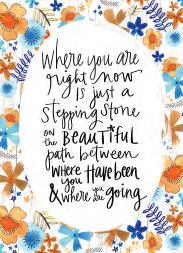 Where you are
right now
is just a
stepping stone
on the BEAUTIFUL
path between
WHERE you HAVE been
& where you are going